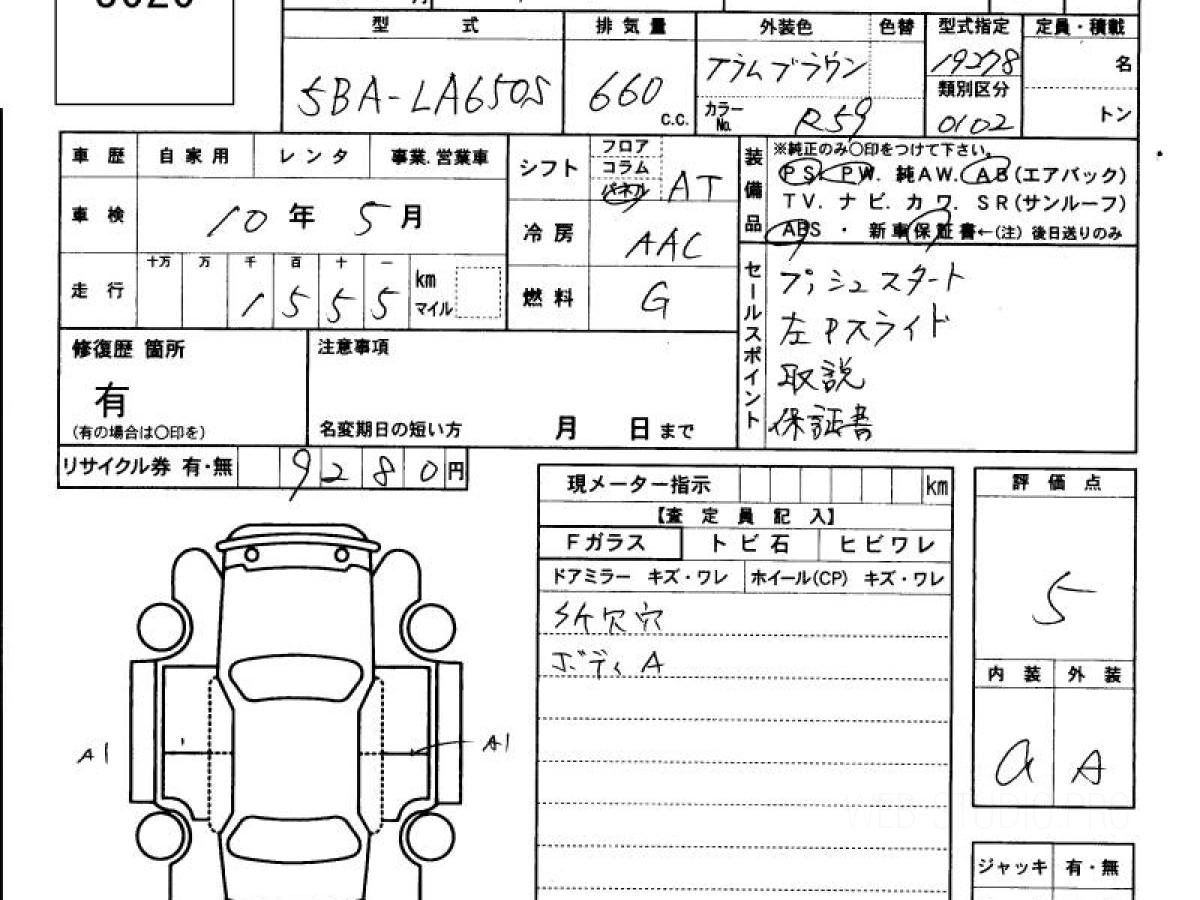 型 式
排気量
外装色
色替
型式指定
定員・積載
5BA-LA650S
660
c.c.
プラムブラウン
カラーNo.
R59
19278
類別区分
0102
名
トン
車歴
自家用
レンタ
事業.営業車
車検
10年 5月
走行
十万 万 千 百 十 一
1 5 5 5
km
マイル
シフト
フロア
コラム
パネル
AT
冷房
AAC
燃料
G
装備品
※純正のみ〇印をつけて下さい。
PS. PW. 純AW. AB(エアバック)
TV. ナビ. カワ. SR(サンルーフ)
ABS ・ 新車保証書←(注) 後日送りのみ
セールスポイント
プッシュスタート
左Pスライド
取説
保証書
修復歴 箇所
有
(有の場合は〇印を)
注意事項
名変期日の短い方 月 日まで
リサイクル券 有・無
9280円
現メーター指示
km
【査定員記入】
Fガラス
トビ石
ヒビワレ
ドアミラー キズ・ワレ
ホイール(CP) キズ・ワレ
欠穴
ボディA
評価点
5
内装
外装
a
A
A1
A1
ジャッキ
有・無
WEB-STUDIO.PRO